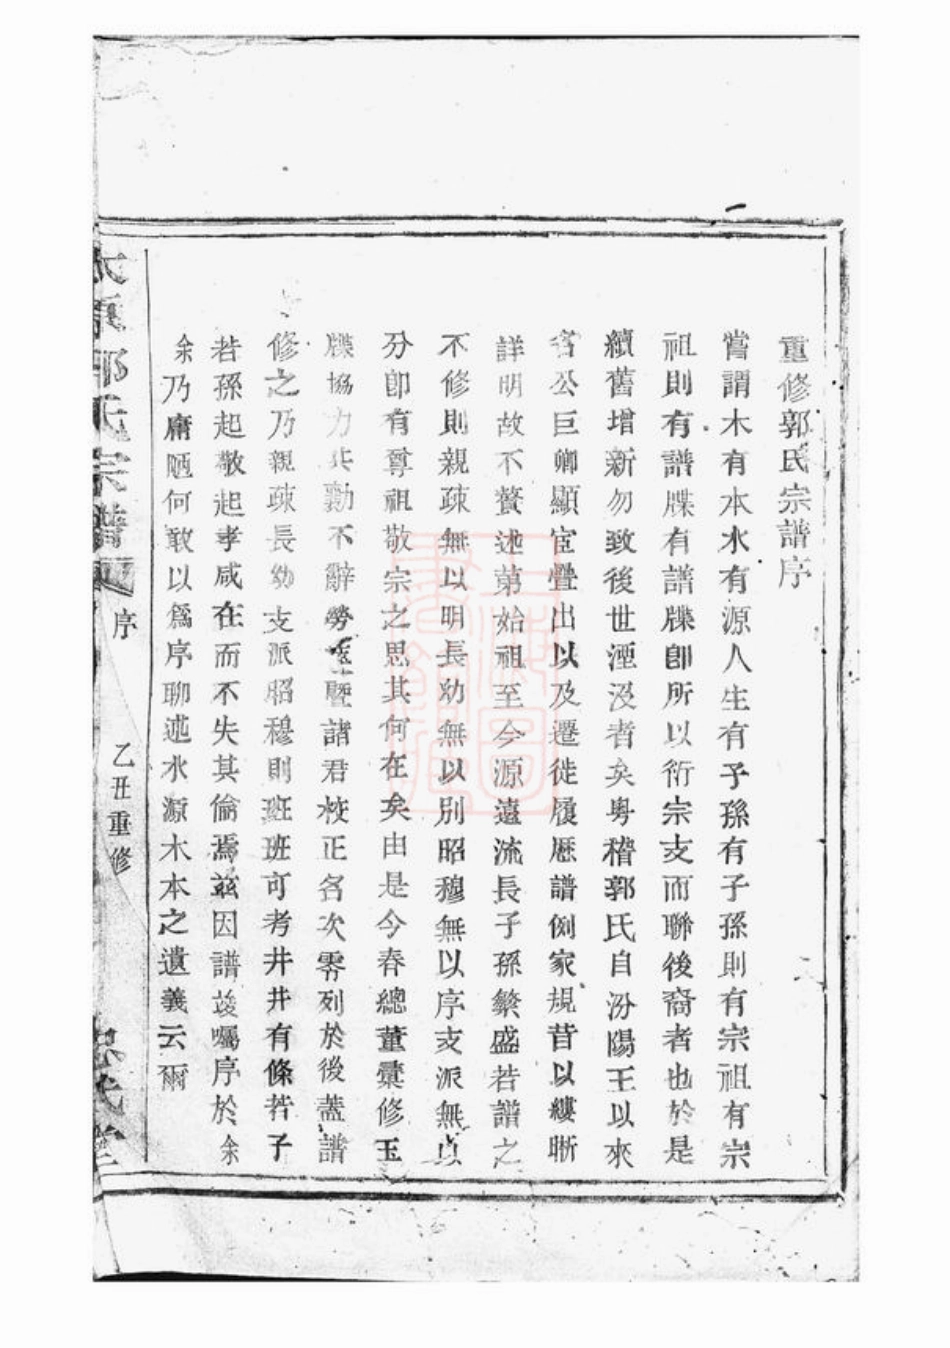 重修郭氏宗譜序
嘗謂木有本水有源人生有子孫有子孫則有宗祖有宗
祖則有譜牒有譜牒卽所以衍宗支而聯後裔者也於是
續舊增新勿致後世湮沒者矣粤稽郭氏自汾陽王以來
名公巨卿顯宦疊出以及遷徙履歷譜例家規昔以縷晰
詳明故不贅述第始祖至今源遠流長子孫繁盛若譜之
不修則親疎無以明長幼無以別昭穆無以序支派無以
分卽有尊祖敬宗之思其何在矣由是今春總董彙修玉
牒協力共勷不辭勞 暨諸君校正名次零列於後蓋譜
修之乃親疎長幼支派昭穆則班班可考井井有條若子
若孫起敬起孝咸在而不失其倫焉兹因譜竣囑序於余
余乃庸陋何敢以爲序聊述水源木本之遺義云爾
太原郭氏宗譜 序 乙丑重修 堂